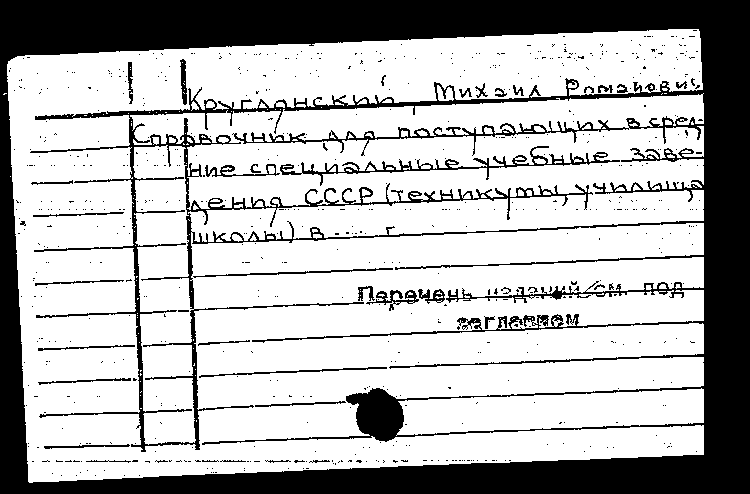 Круглянский, Михаил Романович
Справочник для поступающих в сред-
ние специальные учебные заве-
дения СССР (техникумы, училища
школы) в .... г
Перечень изданий см. под
заглавием